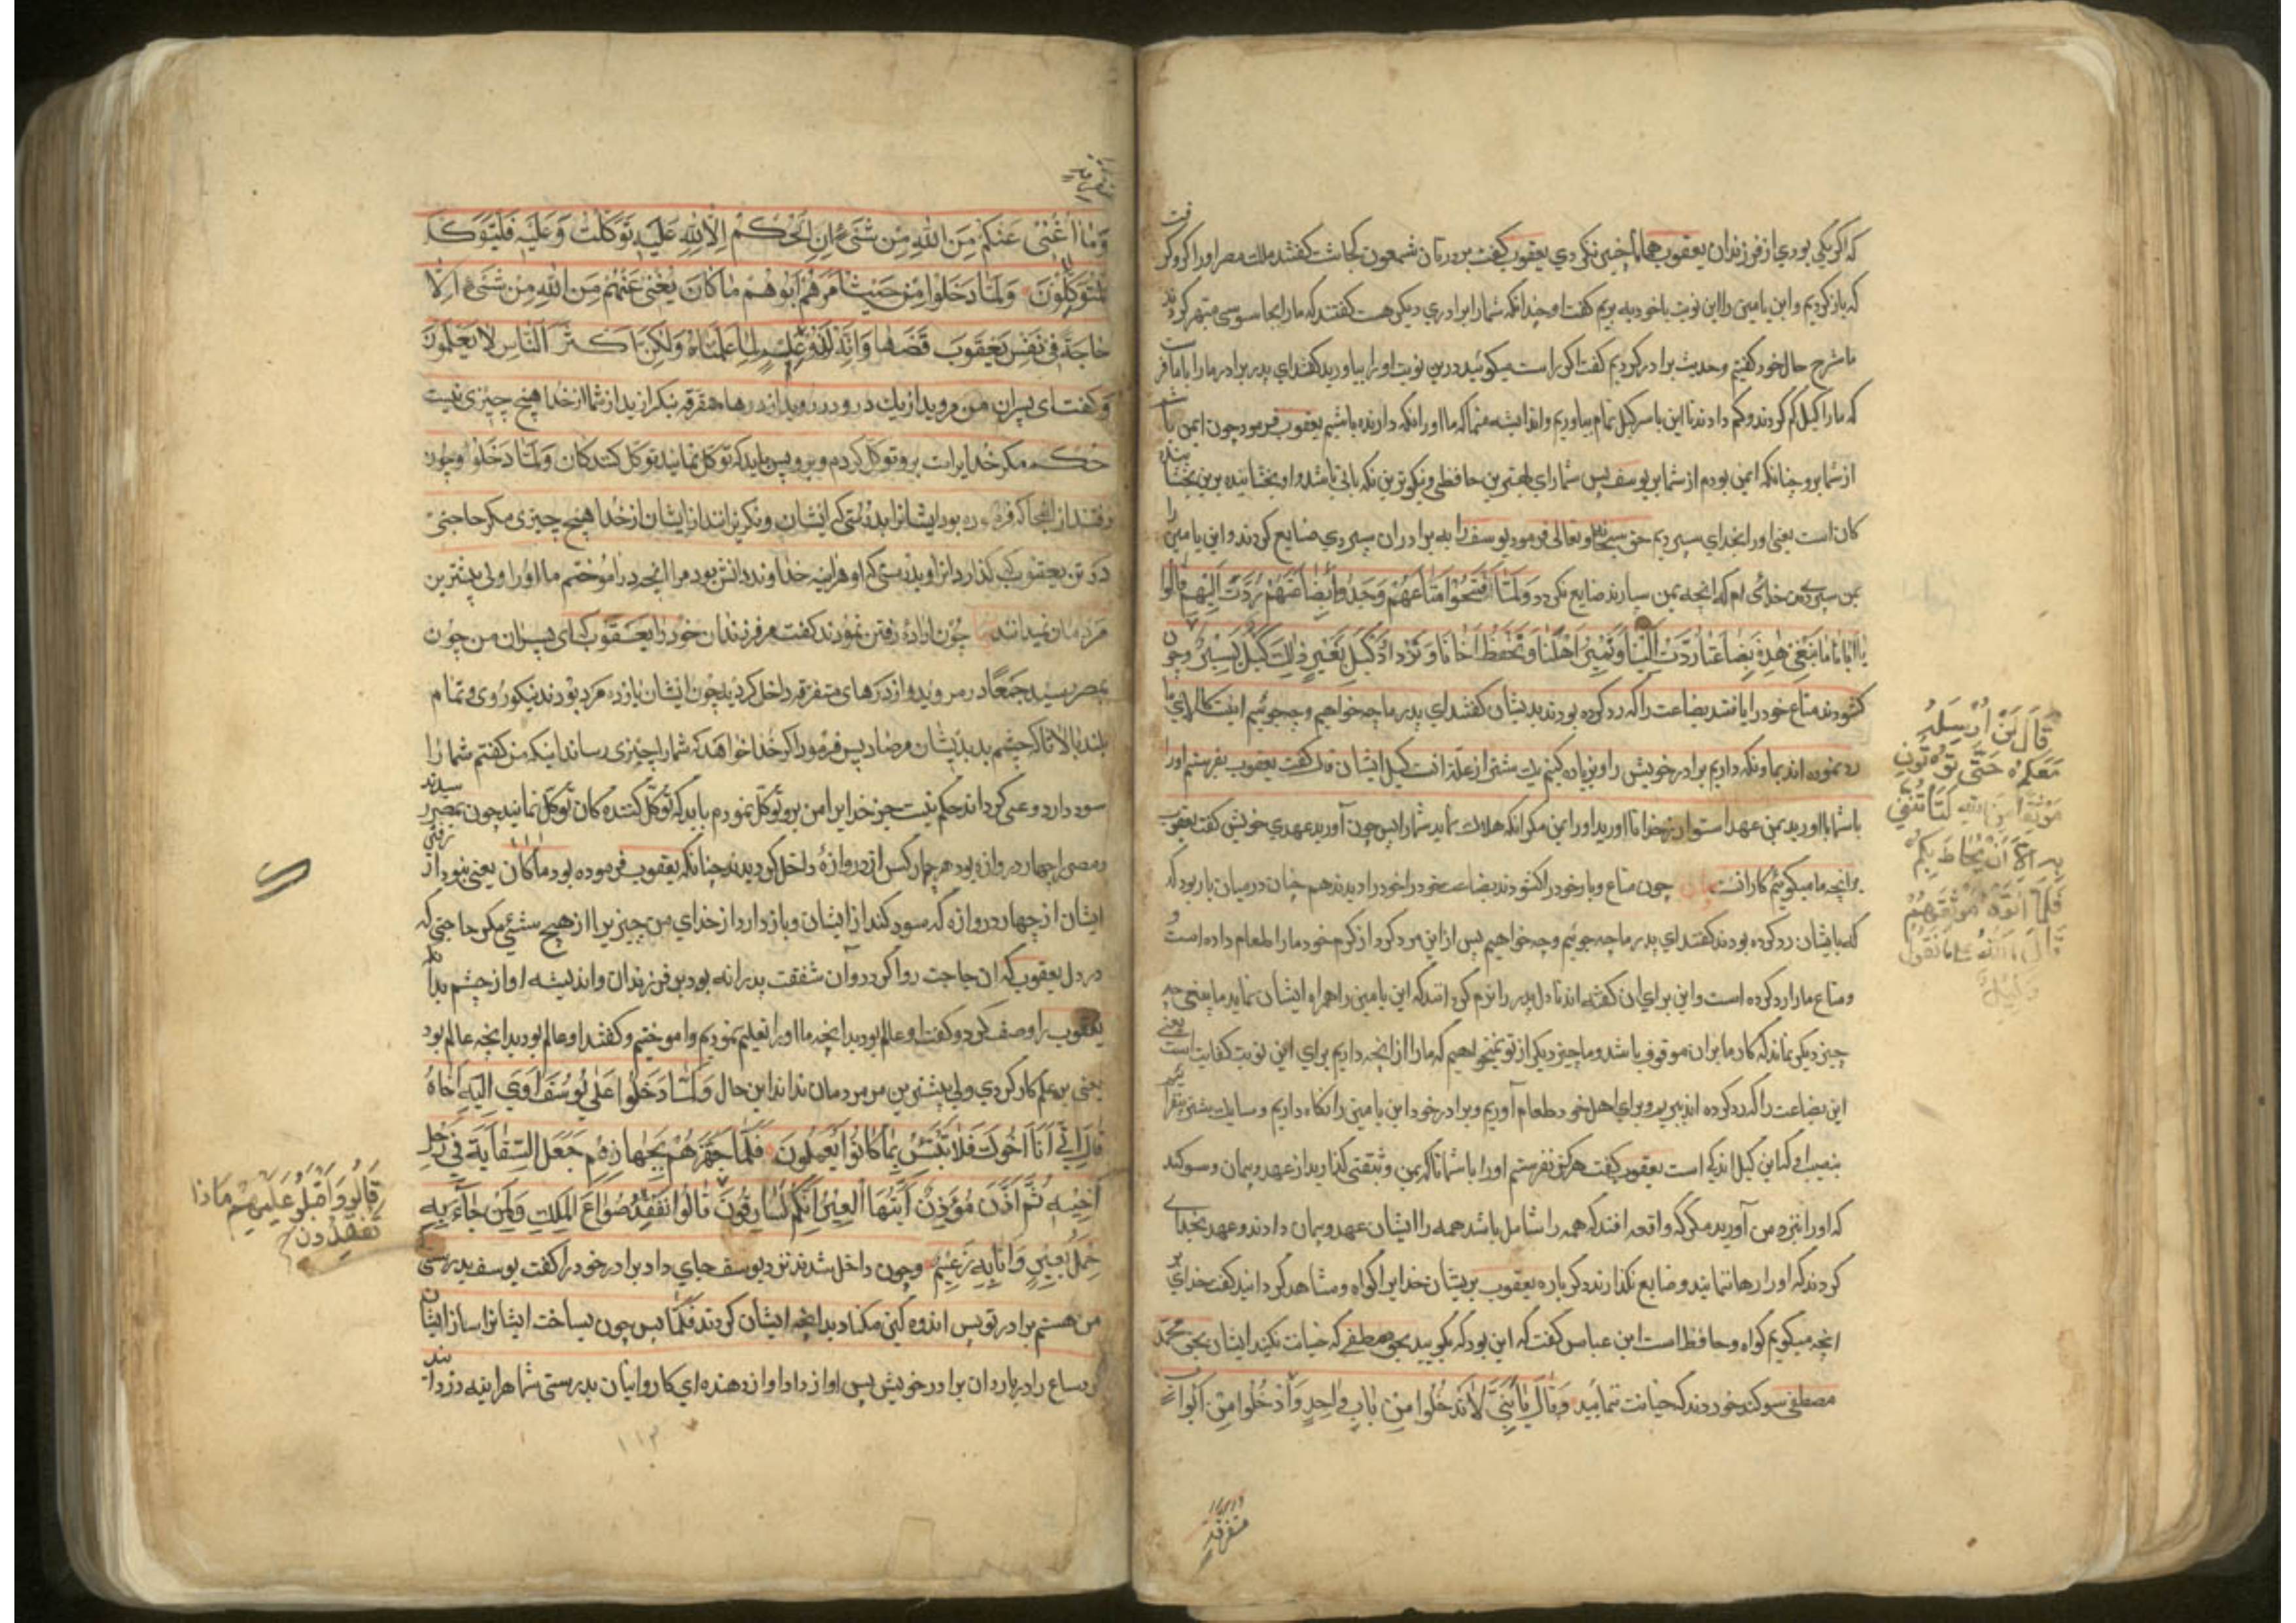 که اگر یکی بودی از فرزندان یعقوب همانا چنین نکردی یعقوب گفت برادرتان شمعون کجاست گفتند ملک مصر او را گرو گرفت
که باز گردیم و ابن یامین را این نوبت با خود به بریم گفت او چه داند که شما را برادری دیگر هست گفتند که ما را بجاسوسی متهم کردند
ما شرح حال خود گفتیم و حدیث برادر کردیم گفت اگر راست میگوئید درین نوبت او را بیاورید گفتند ای پدر برادر ما را با ما فرست
که ما را کیل کم کردند و کم دادند تا این بار کیل تمام بیاوریم و اندیشه منما که ما او را نکه دارنده باشیم یعقوب فرمود چون ایمن باشم
از شما برو چنانکه ایمن بودم از شما بر یوسف پس شما را ای بهترین حافظی و نیکوترین نکه بانی باشد و او بخشاینده ترین بخشایندہ
کان است یعنی او را بخدای سپردیم حق سبحانه و تعالی فرمود یوسف را به برادران سپردی ضایع کردند و ابن یامین را
بمن سپردی من خدائی ام که انچه بمن سپارند ضایع نکردد وَلَمَّا فَتَحُوا مَتَاعَهُمْ وَجَدُوا بِضَاعَتَهُمْ رُدَّتْ اِلَیْهِمْ قَالُوا
یَا اَبَانَا مَا نَبْغِی هٰذِهِ بِضَاعَتُنَا رُدَّتْ اِلَیْنَا وَنَمِیرُ اَهْلَنَا وَنَحْفَظُ اَخَانَا وَنَزْدَادُ کَیْلَ بَعِیرٍ ذٰلِکَ کَیْلٌ یَسِیرٌ وچون
کشودند متاع خود را یافتند بضاعت را که رد کرده بودند بدیشان گفتند ای پدر ما چه خواهیم و چه جوئیم اینست کالای ما
رد نموده اند بما و نکه داریم برادر خویش را و زیاده کنیم یک شتر از غله انست کیل ایشان قال گفت یعقوب بفرستم او را
با شما تا اورید بمن عهد استوار از خدا تا اورید او را بمن مگر انکه هلاک نماید شما را پس چون آورید عهدی خویش گفت یعقوب
بر انچه ما میگوئیم کارانست چون متاع و بار خود را کشودند بضاعت خود را خود را دیدند هم چنان در میان بار بود که
که بایشان رد کرده بودند گفتند ای پدر ما چه جوئیم و چه خواهیم پس از این مرد که از کرم خود ما را طعام داده است و
و متاع ما را رد کرده است و این برای ان گفته اند تا دل پدر را نرم گردانند که ابن یامین را همراه ایشان نماید ما یعنی چه
چیز دیگر نماند که کار ما بران موقوف باشد و ما چیز دیگر از تو نمیخواهیم که ما را از انچه داریم برای این نوبت کفایت است یعنی
این بضاعت را که رد کرده اند ببریم و برای اهل خود طعام آوریم و برادر خود ابن یامین را نکاه داریم و
بنصیب او که این کیل اندکی است یعقوب گفت هرکز نفرستم او را با شما تا که بمن وثیقتی کذارید از عهد و پیمان و سوکند
که او را بنزد من آورید مگر که واقعه افتد که همه را شامل باشد همه را ایشان عهد و پیمان دادند و عهد بخدای
کردند که او را رها ننمایند و ضایع نگذارند دکر باره یعقوب بر یشان خدا را گواه و مشاهد کردانید گفت خدای بر
انچه میگویم گواه و حافظ است ابن عباس گفت که این بود که بگویید بحق مصطفی که خیانت نکنید ایشان بحق محمد
مصطفی سوکند خوردند که خیانت ننمایند وَقَالَ یَا بَنِیَّ لَا تَدْخُلُوا مِنْ بَابٍ وَاحِدٍ وَادْخُلُوا مِنْ اَبْوَابٍ
متفرقة
قَالَ لَنْ اُرْسِلَهُ
مَعَکُمْ حَتَّی تُؤْتُونِ
مَوْثِقًا مِنَ اللّٰهِ لَتَأْتُنَّنِی
بِهِ اِلَّا اَنْ یُحَاطَ بِکُمْ
فَلَمَّا اٰتَوْهُ مَوْثِقَهُمْ
قَالَ اللّٰهُ عَلَی مَا نَقُولُ
وَکِیلٌ
متفرقة
وَمَا اُغْنِی عَنْکُمْ مِنَ اللّٰهِ مِنْ شَیْءٍ اِنِ الْحُکْمُ اِلَّا لِلّٰهِ عَلَیْهِ تَوَکَّلْتُ وَعَلَیْهِ فَلْیَتَوَکَّلِ
الْمُتَوَکِّلُونَ وَلَمَّا دَخَلُوا مِنْ حَیْثُ اَمَرَهُمْ اَبُوهُمْ مَا کَانَ یُغْنِی عَنْهُمْ مِنَ اللّٰهِ مِنْ شَیْءٍ اِلَّا
حَاجَةً فِی نَفْسِ یَعْقُوبَ قَضٰهَا وَاِنَّهُ لَذُو عِلْمٍ لِمَا عَلَّمْنَاهُ وَلٰکِنَّ اَکْثَرَ النَّاسِ لَا یَعْلَمُونَ
و گفت ای پسران من مروید از یک در و در روید از درها متفرقه نکر ازید از شما از خدا هیچ چیزی نیست
حکم مگر خدایرا برو توکل کردم و برو پس باید که توکل نمایند توکل کنندکان وَلَمَّا دَخَلُوا وچون
رفتند از انجا که فرموده بود ایشانرا پدر ایشان و نکریزاند از ایشان از خدا هیچ چیزی مگر حاجتی
در تن یعقوب که کذارد انرا و بدرستی که او هراینه خداوند دانش بود مر انچه در اموختیم ما او را ولی بیشترین
مردمان نمیدانند چون ارادهٔ رفتن نمودند گفت مر فرزندان خود را یعقوب که ای پسران من چون
بمصر رسید جمعًا در مروید و از درهای متفرقه داخل کردید چون ایشان یازده مرد بودند نیکو روی و تمام
بلند بالا تا که چشم بد بدیشان مرصاد پس فرمود اگر خدا خواهد که شما را چیزی رساند اینکه من گفتم شما را
سود دارد و عمی کرداند حکم نیست جز خدایرا من برو توکل نمودم باید که توکل کننده کان توکل نمایند چون بمصر رسیدند
و مصر را چهار دروازه بود هر چهار کس از دروازهٔ داخل کردیدند چنانکه یعقوب فرموده بود مَا کَانَ یعنی نبود از رفتن
ایشان از چهار دروازه که سود کند از ایشان و باز دارد از خدای من چیزیرا از هیچ شیئی مگر حاجتی که
در دل یعقوب که ان حاجت روا کرد و آن شفقت پدرانه بود بر فرزندان و اندیشه او از چشم بد
یعقوب را وصف کرد و گفت او عالم بود بدانچه ما او را تعلیم نمودیم و اموختیم و گفتند او عالم بود بدانچه عالم بود
یعنی به علم کار کردی ولی بیشترین مر مردمان نداند این حال وَلَمَّا دَخَلُوا عَلٰی یُوسُفَ اٰوٰی اِلَیْهِ اَخَاهُ
قَالَ اِنِّی اَنَا اَخُوکَ فَلَا تَبْتَئِسْ بِمَا کَانُوا یَعْمَلُونَ فَلَمَّا جَهَّزَهُمْ بِجَهَازِهِمْ جَعَلَ السِّقَایَةَ فِی رَحْلِ
اَخِیهِ ثُمَّ اَذَّنَ مُؤَذِّنٌ اَیَّتُهَا الْعِیرُ اِنَّکُمْ لَسَارِقُونَ قَالُوا نَفْقِدُ صُوَاعَ الْمَلِکِ وَلِمَنْ جَاءَ بِهِ
حِمْلُ بَعِیرٍ وَاَنَا بِهِ زَعِیمٌ وچون داخل شدند نزد یوسف جای داد برادر خود را گفت یوسف بدرستی که
من هستم برادر تو پس اندوه کین مباد بدانچه ایشان کردند فَلَمَّا پس چون بساخت ایشانرا ساز ایشان
صاع را در باردان برادر خویش پس اواز داد اواز دهنده ای کاروانیان بدرستی شما هراینه دزدانند
قَالُوا وَاَقْبَلُوا عَلَیْهِمْ مَاذَا
تَفْقِدُونَ
۱۱۳